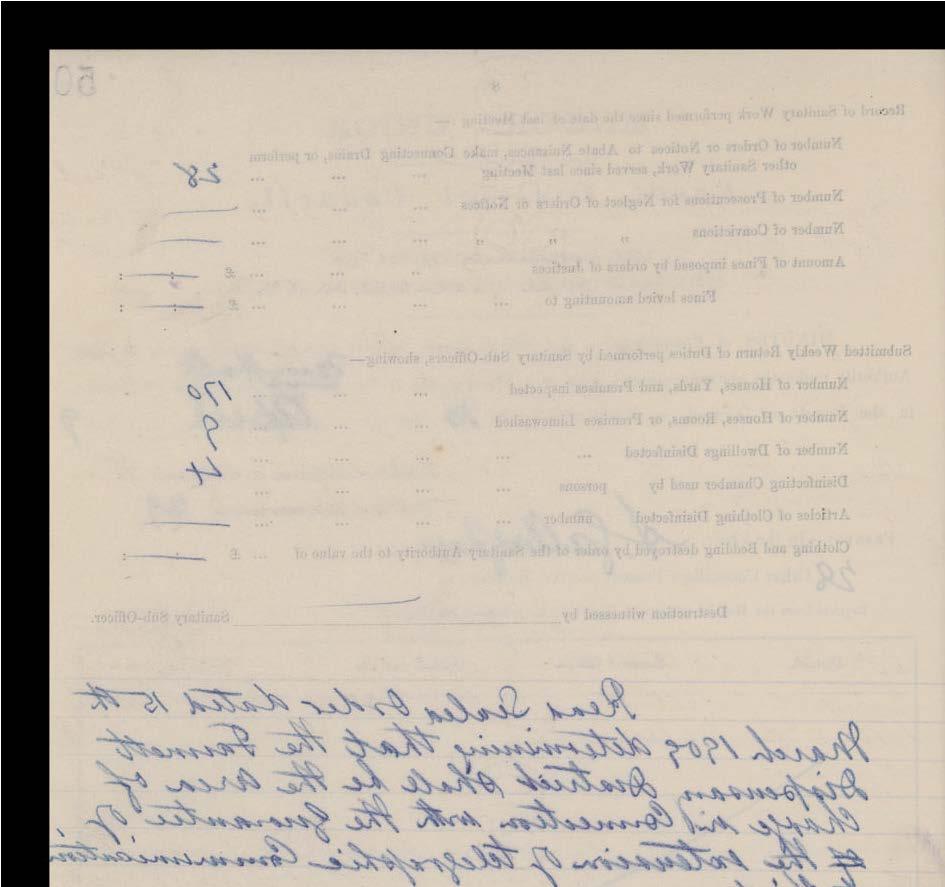 50
8
Record of Sanitary Work performed since the date of last Meeting :—
Number of Orders or Notices to Abate Nuisances, make Connecting Drains, or perform
other Sanitary Work, served since last Meeting ... ... ... 28
Number of Prosecutions for Neglect of Orders or Notices ... ... ...
Number of Convictions " " " ... ... ...
Amount of Fines imposed by orders of Justices ... ... ... £ : :
Fines levied amounting to ... ... ... ... £ : :
Submitted Weekly Return of Duties performed by Sanitary Sub-Officers, showing—
Number of Houses, Yards, and Premises inspected ... ... ... 170
Number of Houses, Rooms, or Premises Limewashed ... ... ... 9
Number of Dwellings Disinfected ... ... ... ... ... 4
Disinfecting Chamber used by persons ... ... ... ...
Articles of Clothing Disinfected number ... ... ... ...
Clothing and Bedding destroyed by order of the Sanitary Authority to the value of ... £ : :
Destruction witnessed by Sanitary Sub-Officer.
28
Read Sealed Order dated 15th
March 1909 determining that the
Dispensary District shall be the area of
Charge in Connection with the Guarantee of
the extension of telegraphic Communication